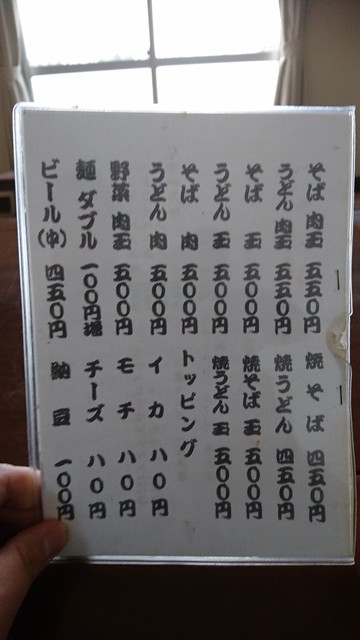 そば 肉玉 五五〇円
うどん 肉玉 五五〇円
そば 玉 五〇〇円
うどん 玉 五〇〇円
そば 肉 五〇〇円
うどん 肉 五〇〇円
野菜 肉玉 五〇〇円
麺 ダブル 一〇〇円増
ビール(中) 四五〇円
焼そば 四五〇円
焼うどん 四五〇円
焼そば 玉 五〇〇円
焼うどん 玉 五〇〇円
トッピング
イカ 八〇円
モチ 八〇円
チーズ 八〇円
納豆 一〇〇円